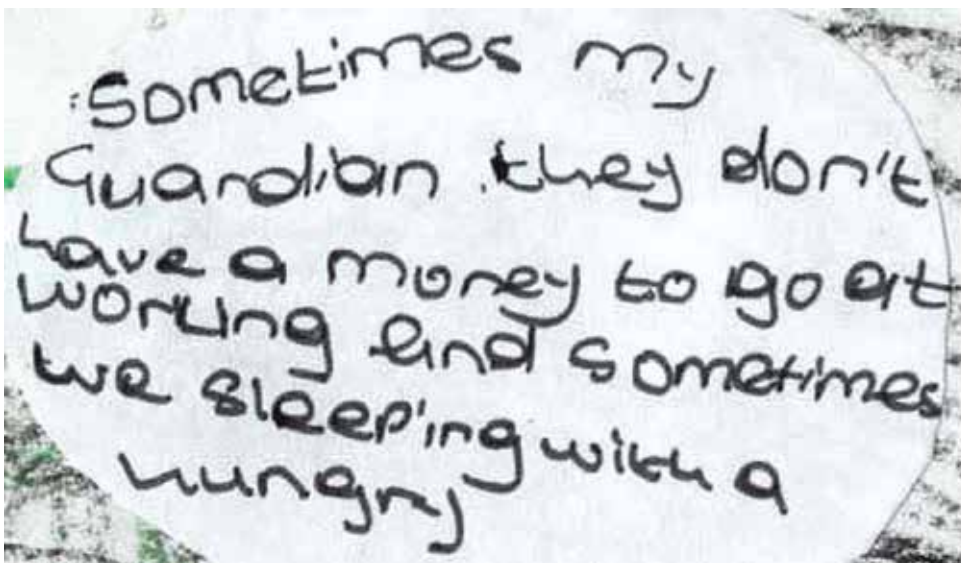 Sometimes my
Guardian they don't
have a money to go at
working and sometimes
we sleeping with a
hungry